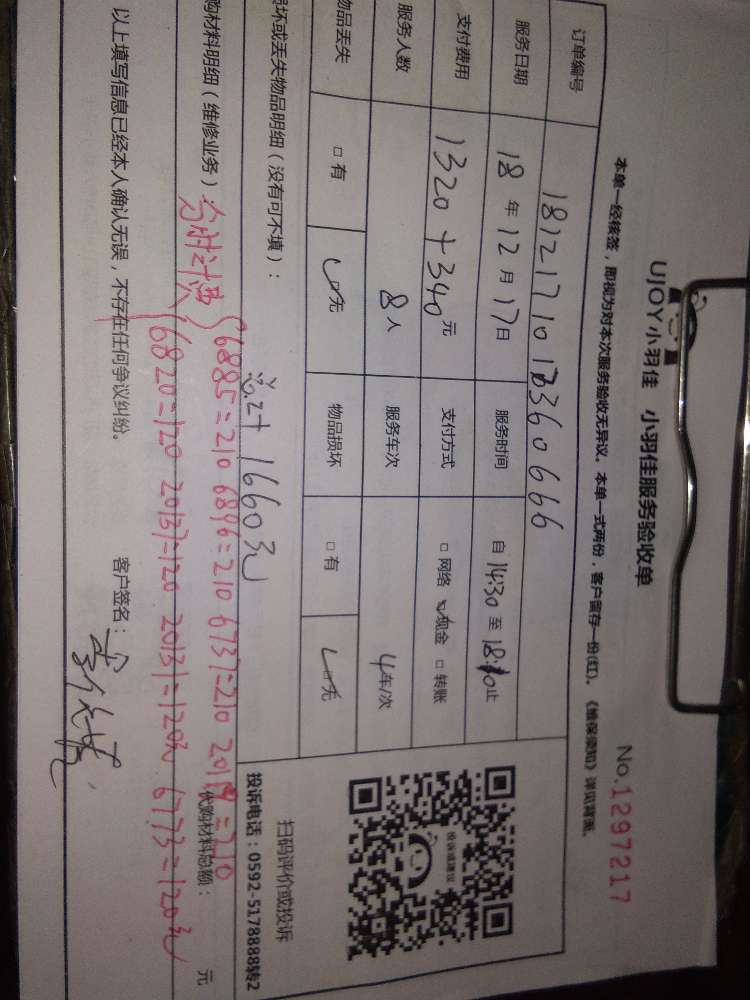 UJOY小羽佳 小羽佳服务验收单
No.1297217
本单一经核签，即视为对本次服务验收无异议。本单一式两份，客户留存一份(红)。《维保须知》详见背面。
订单编号 1812171018360666
服务日期 18年12月17日 服务时间 自14:30至18:10止
支付费用 1320+340元 支付方式 □网络 ☑现金 □转账
服务人数 8人 服务车次 4车/次
物品丢失 □有 ☑无 物品损坏 □有 ☑无
投诉或建议
扫码评价或投诉
投诉电话：0592-5178888转2
坏或丢失物品明细（没有可不填）：
总计1660元
购材料明细（维修业务） 代购材料总额： 元
6885=210 6896=210 6737=210 20119=210
6820=120 20137=120 20131=120元 6773=120元
以上填写信息已经本人确认无误，不存在任何争议纠纷。 客户签名：